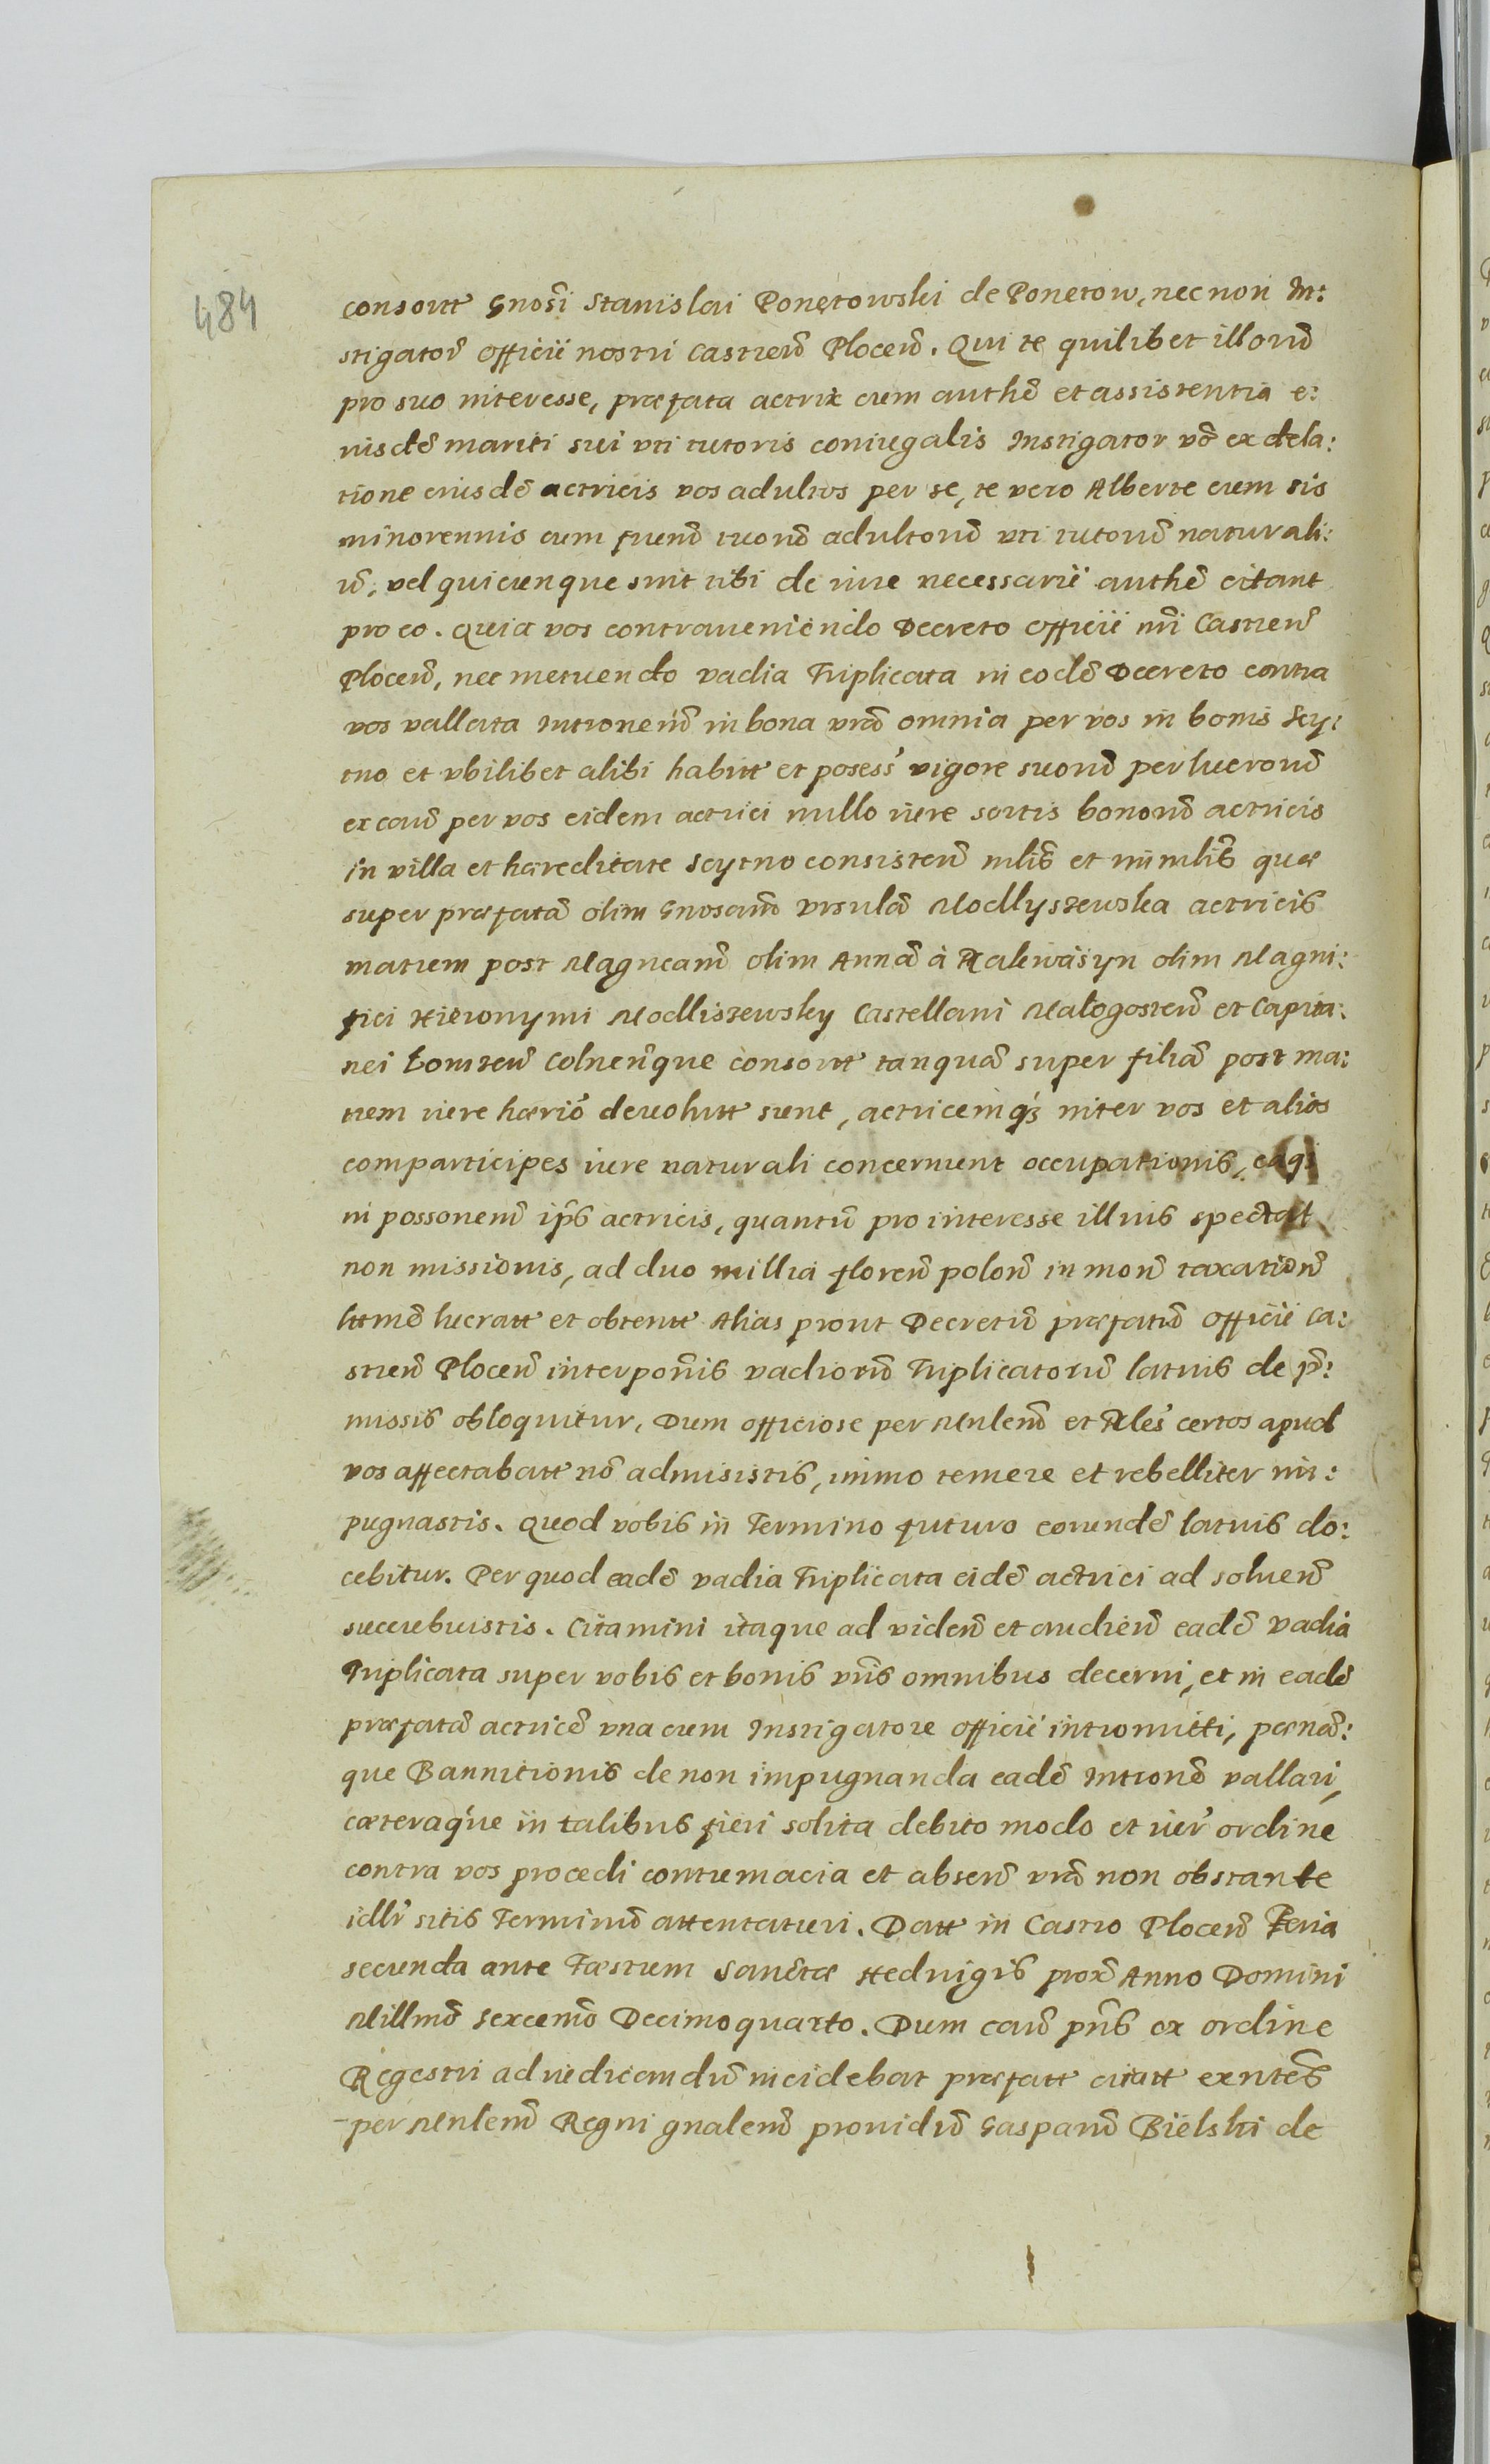 484
consortt Gnosi Stanislai Ponętowski de Ponetow, nec non In:
stigator Officii nostri Castren Plocen. Qui te quilibet illorū
pro suo interesse, præfata actrix cum authē et assistentia e:
iusdē mariti sui vti tutoris coniugalis Instigator vō ex dela:
tione eiusdē actricis vos adultos per se, te vero Alberte cum sis
minorennis cum fuenū tuorū adultorū vti tutorū naturali:
ū, vel quicunque sint tibi de iure necessarii authē citant
pro eo. Quia vos contraueniendo Decreto Officii nri Castren
Plocen, nec metuendo vadia Triplicata in eodē Decreto contra
vos vallata Intronenū in bona vrā omnia per vos in bonis Scy:
tno et vbilibet alibi habitt et posess vigore suorū perlucrorū
ex caū per vos eidem actrici nullo iure sortis bonorū actricis
in villa et hæreditate Scytno consisten mlib et inmlib quæ
super præfatā olim Gnosam Vrsulā Modlyszewska actricis
matrem post Magncam olim Annā à Malewąsyn olim Magni:
fici Hieronymi Modliszewsky Castellani Małogosten et Capita:
nei Łomzen Colnenque consortt tanquā super filiā post ma:
trem iure hærio deuolutt sunt, actricemq3 inter vos et alios
comparticipes iure naturali concernunt occupationis, eaq3
in possonem ips actricis, quantū pro interesse illius spectat
non missionis, ad duo millia floren polon in mon taxation
lttmē lucratt et obtentt Alias prout Decretū præfatū Officii Ca:
stren Plocen interponis vadiorū Triplicatorū latius de p:
missis obloquitur, Dum officiose per Mnlem et Nles certos apud
vos affectabatt nō admisistis, immo temere et rebelliter im:
pugnastis. Quod vobis in Termino futuro eorundē latius do:
cebitur. Per quod eadē vadia Triplicata eidē actrici ad soluen
succubuistis. Citamini itaque ad viden et audien eadē vadia
Triplicata super vobis et bonis vris omnibus decerni, et in eadē
præfatā actricē vna cum Instigatore officii intromitti, pœnā:
que Bannitionis de non impugnanda eadē Intronē vallari,
cæteraque in talibus fieri solita debito modo et iur ordine
contra vos procedi contumacia et absen vrā non obstante
idlr sitis Terminū attentaturi. Datt in Castro Plocen Feria
secunda ante Fæstum Sanctæ Heduigis prox Anno Domini
Millmō Sexcenmō Decimoquarto. Dum caū pns ex ordine
Regestri ad iudicandū incidebat præfatt citatt exntes
per Mnlem Regni gnalem prouidū Gasparū Bielski de